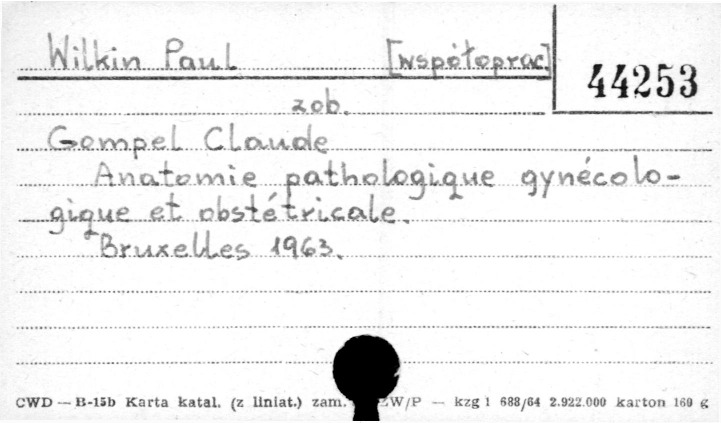 Wilkin Paul [współoprac]
44253
zob.
Gompel Claude
Anatomie pathologique gynécolo-
gique et obstétricale.
Bruxelles 1963.
CWD — B-15b Karta katal. (z liniat.) zam. ZW/P — kzg 1 688/64 2.922.000 karton 160 g